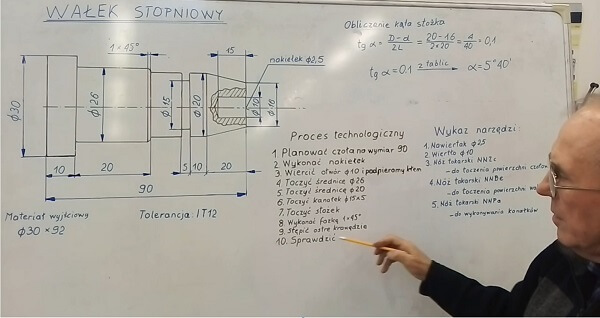 WAŁEK STOPNIOWY
1×45°
15
nakiełek Φ2,5
Φ30
Φ26
Φ15
Φ20
Φ10
Φ16
10
20
5
10
20
90
Materiał wyjściowy
Φ30×92
Tolerancja: IT12
Obliczanie kąta stożka
tg α = D-d / 2L = 20-16 / 2×20 = 4/40 = 0,1
tg α = 0.1 z tablic α = 5°40'
Proces technologiczny
1 Planować czoła na wymiar 90
2 Wykonać nakiełek
3 Wiercić otwór Φ10 i podpieramy kłem
4 Toczyć średnicę Φ26
5 Toczyć średnicę Φ20
6 Toczyć kanałek Φ15×5
7 Toczyć stożek
8 Wykonać fazkę 1×45°
9 Stępić ostre krawędzie
10. Sprawdzić
Wykaz narzędzi:
1. Nawiertak Φ25
2. Wiertło Φ10
3. Nóż tokarski NNZc
- do toczenia powierzchni
4. Nóż tokarski NNBe
- do toczenia powierzchni
5. Nóż tokarski NNPa
- do wykonywania kanałków